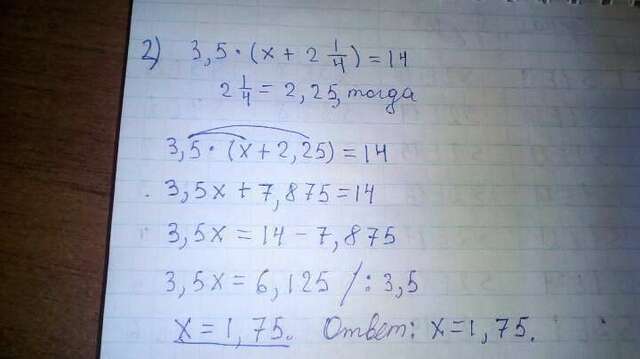 2) 3,5 · (x + 2 1/4) = 14
2 1/4 = 2,25, тогда
3,5 · (x + 2,25) = 14
3,5x + 7,875 = 14
3,5x = 14 - 7,875
3,5x = 6,125 /: 3,5
x = 1,75. Ответ: x = 1,75.